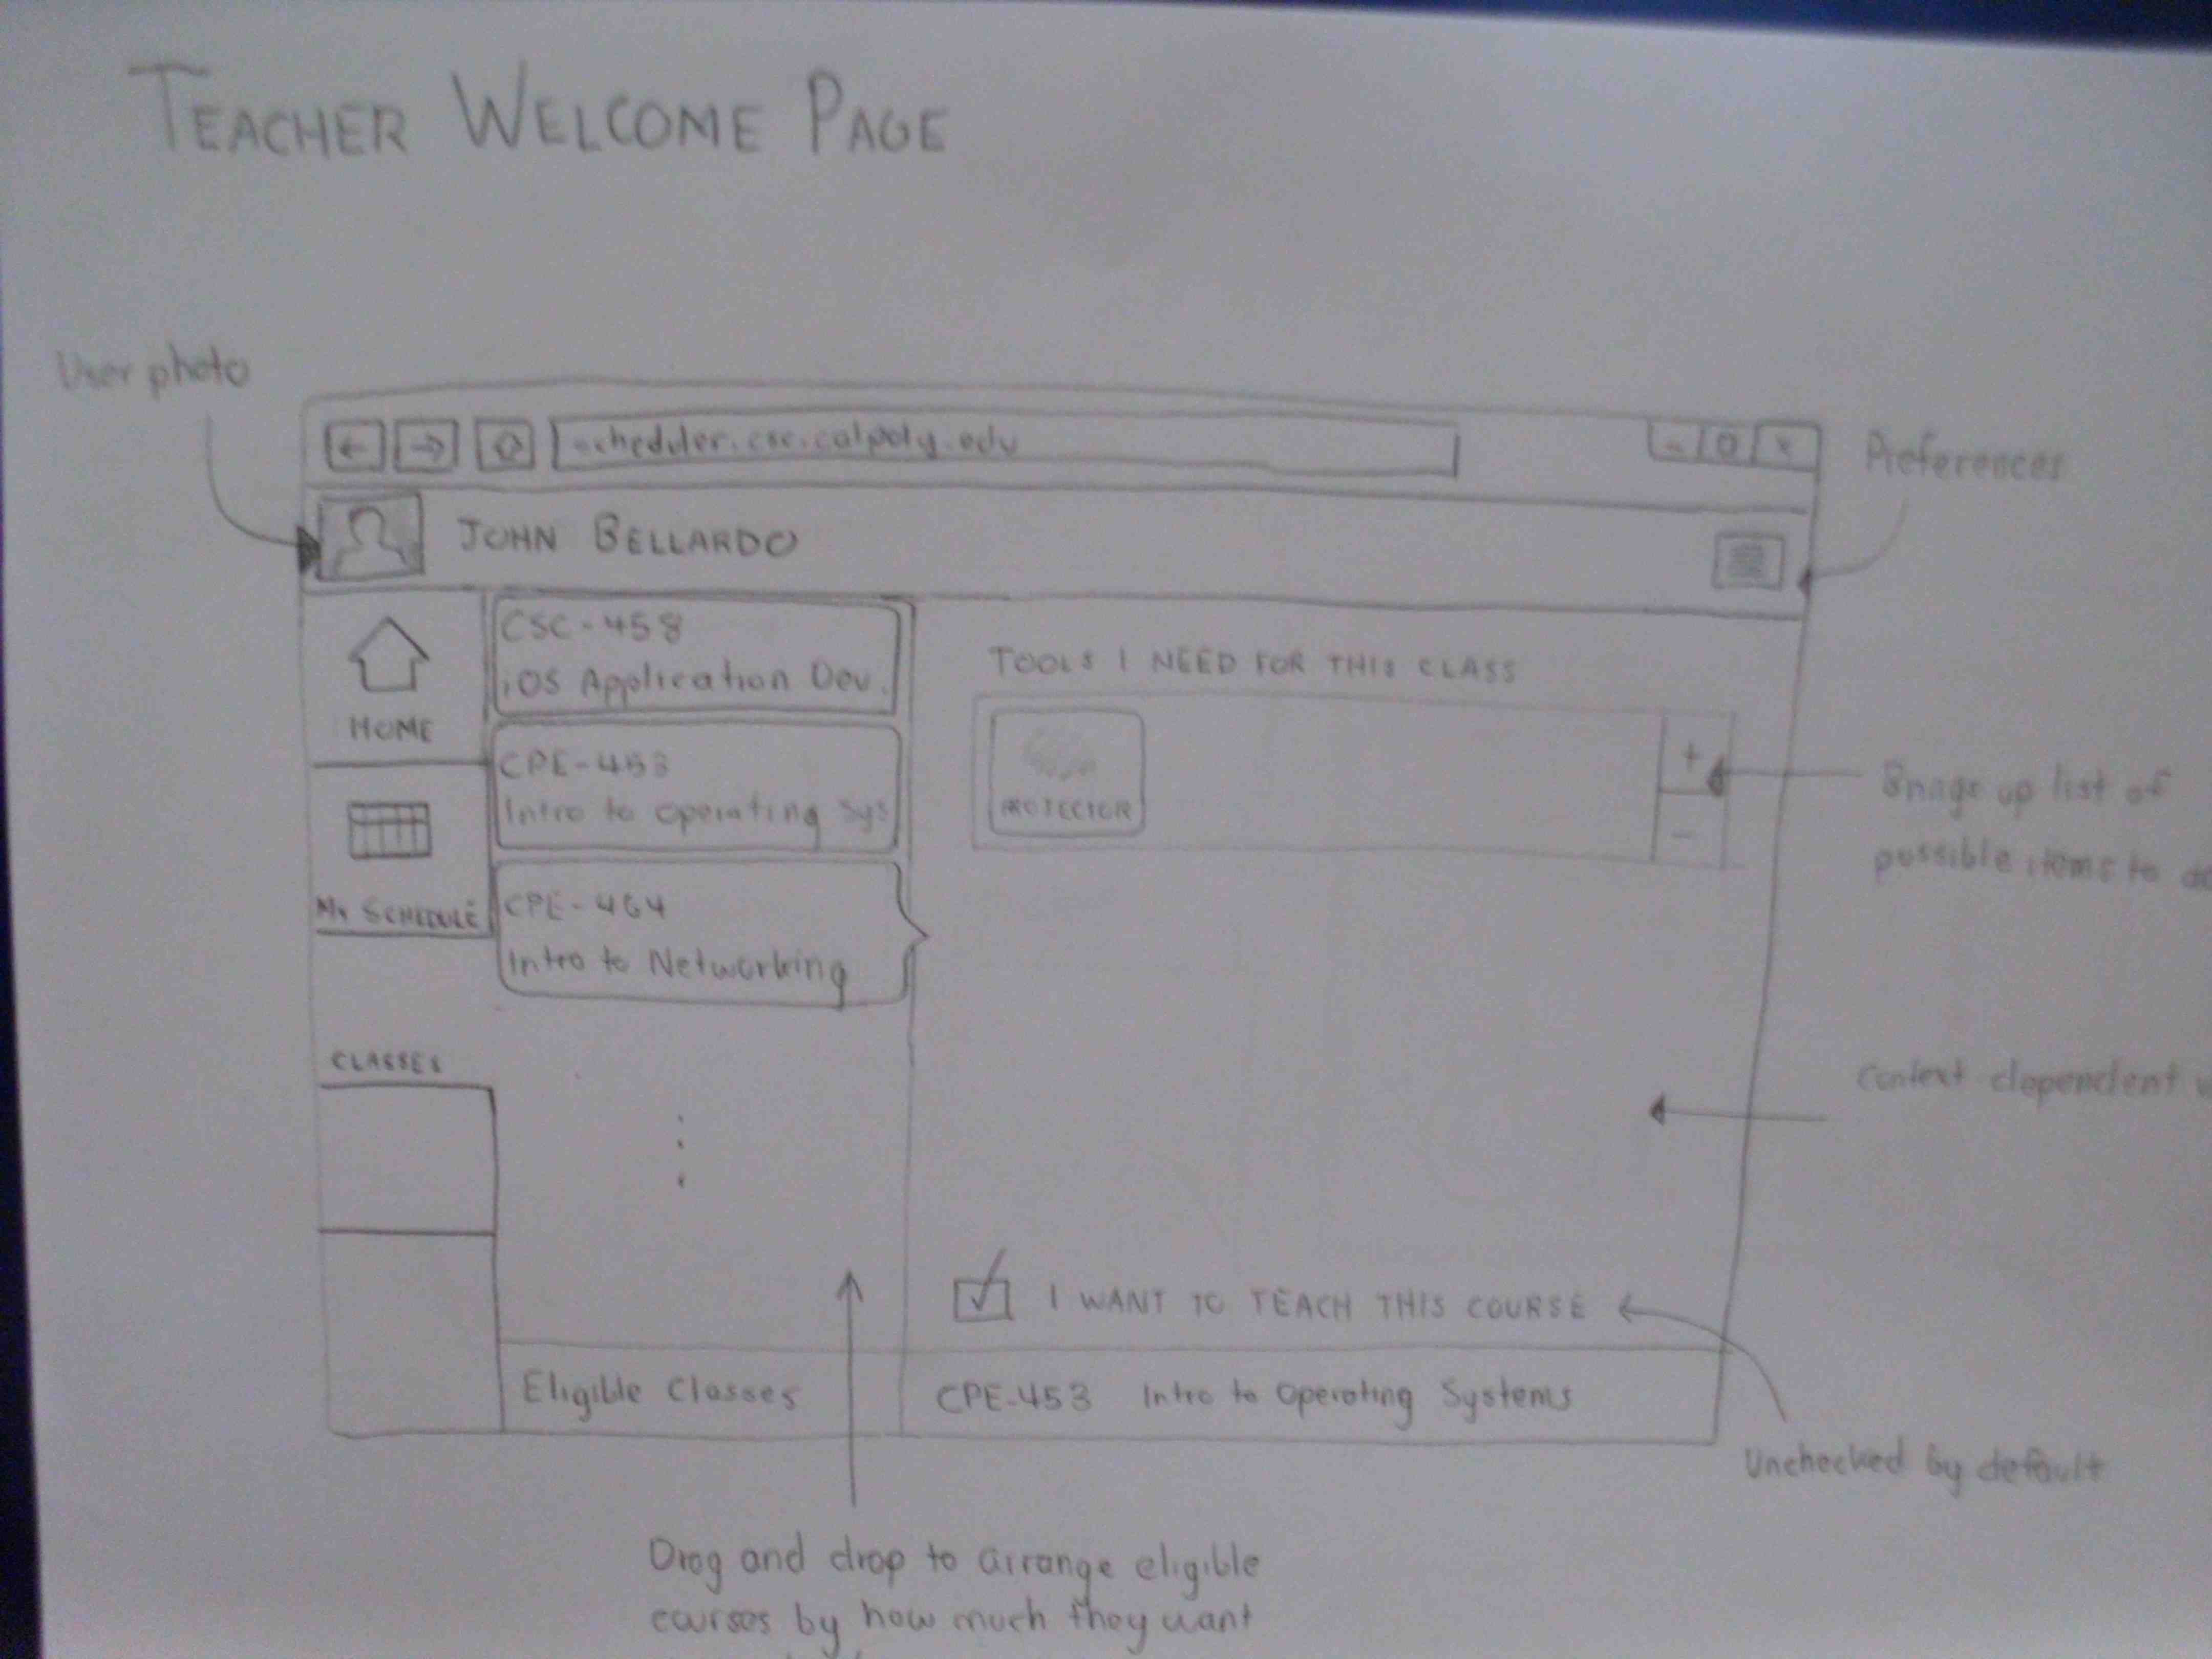 TEACHER WELCOME PAGE
User photo
scheduler.csc.calpoly.edu
Preferences
JOHN BELLARDO
HOME
MY SCHEDULE
CLASSES
CSC-458
iOS Application Dev.
CPE-453
Intro to Operating Sys
CPE-464
Intro to Networking
Eligible Classes
TOOLS I NEED FOR THIS CLASS
PROTECTOR
+
-
Brings up list of
possible items to
Context dependent
I WANT TO TEACH THIS COURSE
CPE-453 Intro to Operating Systems
Unchecked by default
Drag and drop to arrange eligible
courses by how much they want